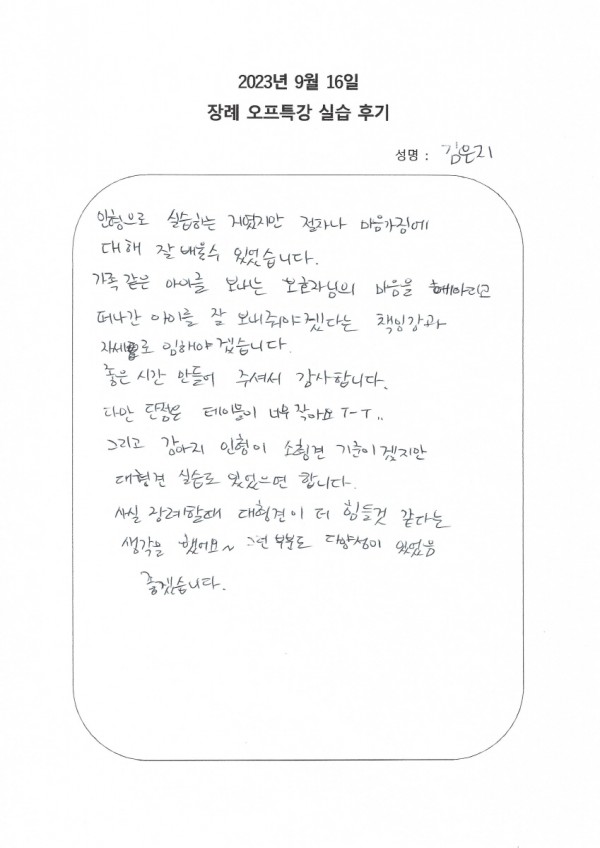 2023년 9월 16일
장례 오프특강 실습 후기
성명 : 김은지
인형으로 실습하는 거였지만 절차나 마음가짐에
대해 잘 배울수 있었습니다.
가족 같은 아이를 보내는 보호자님의 마음을 헤아리고
떠나간 아이를 잘 보내줘야겠다는 책임감과
자세로 임해야 겠습니다.
좋은 시간 만들어 주셔서 감사합니다.
다만 단점은 테이블이 너무 작아요 T-T..
그리고 강아지 인형이 소형견 기준이겠지만
대형견 실습도 있었으면 합니다.
사실 장례할때 대형견이 더 힘들것 같다는
생각을 했어요~ 그런 부분도 다양성이 있었음
좋겠습니다.